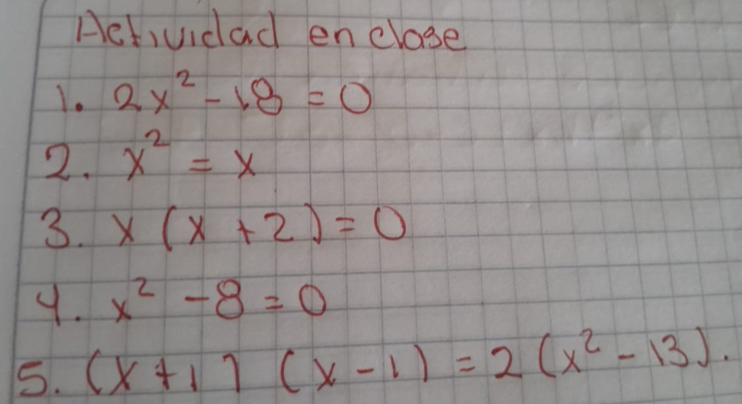 Actividad en clase
1. 2x² - 18 = 0
2. x² = x
3. x (x + 2) = 0
4. x² - 8 = 0
5. (x + 1) (x - 1) = 2 (x² - 13).